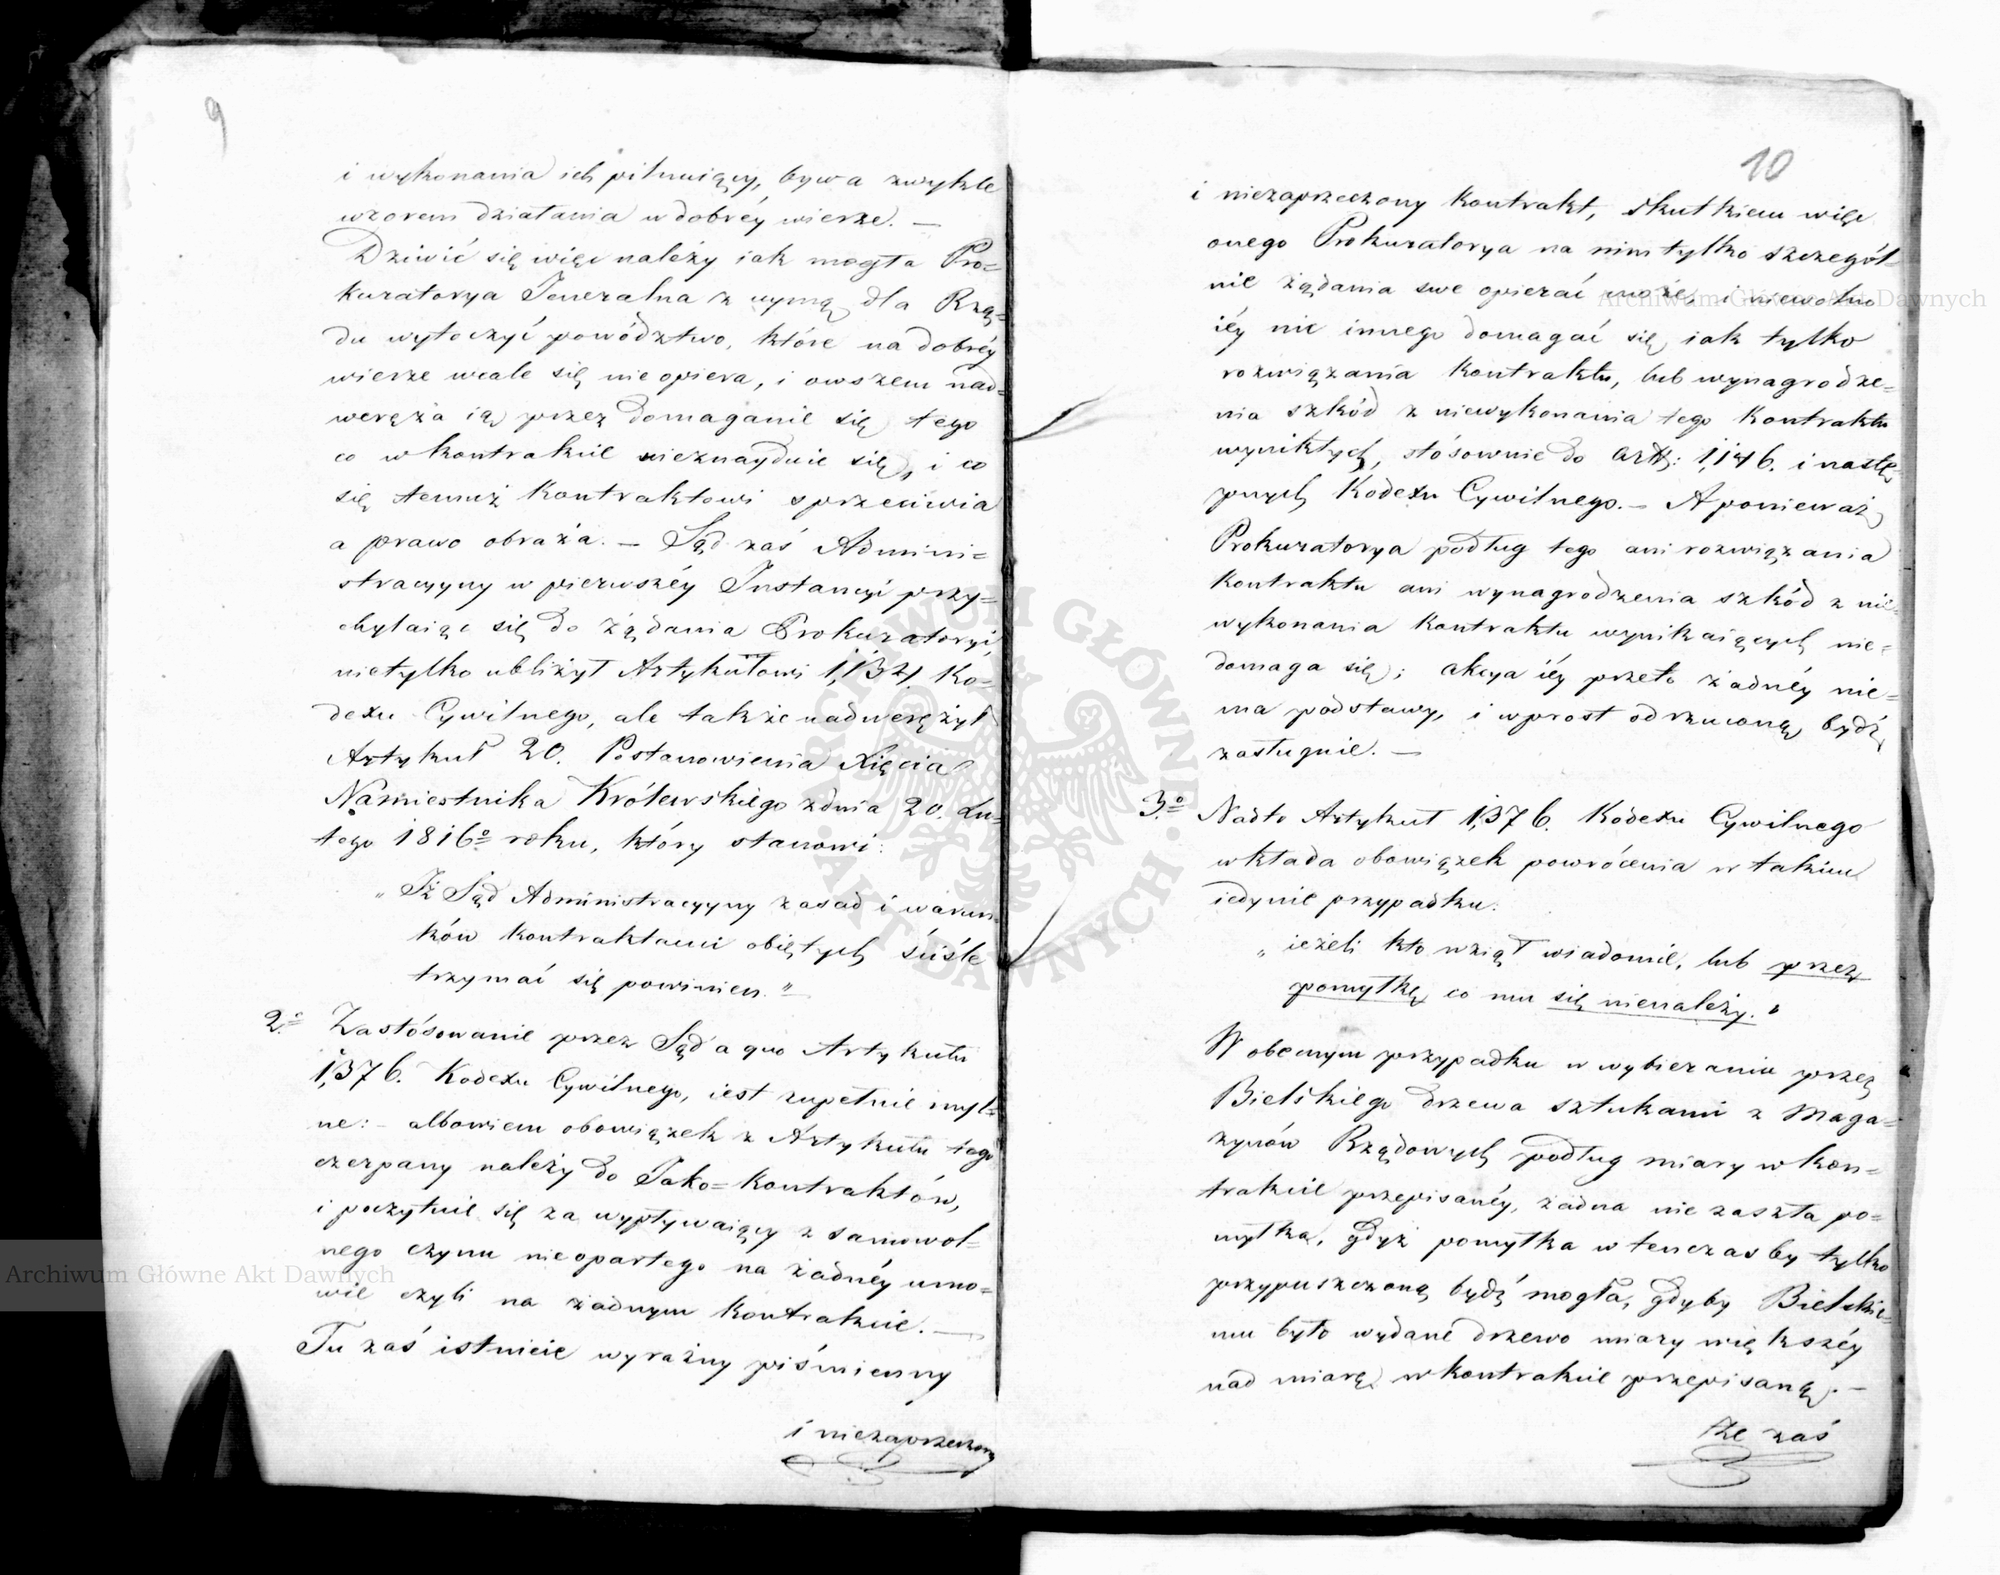 9
i wykonania ich pilnuiący, bywa zwykle
wzorem działania w dobréy wierze. —
Dziwić się więc należy iak mogła Pro=
kuratorya Jeneralna z uymą dla Rzą=
du wytoczyć powództwo, które na dobréy
wierze wcale się nie opiera, i owszem nad=
weręża ią przez domaganie się tego
co w kontrakcie nieznayduie się, i co
się temuż kontraktowi sprzeciwia
a prawo obraża. — Sąd zaś Admini=
stracyyny w pierwszéy Instancyi przy=
chylaiąc się do żądania Prokuratoryi,
nietylko ubliżył Artykułowi 1,134. Ko=
dexu Cywilnego, ale także nadwerężył
Artykuł 20. Postanowienia Xięcia
Namiestnika Królewskiego z dnia 20. Lu=
tego 1816º roku, który stanowi:
„Iż Sąd Administracyyny zasad i warun=
ków kontraktami obiętych ściśle
trzymać się powinien." —
2.º Zastósowanie przez Sąd a quo Artykułu
1,376. Kodexu Cywilnego, iest zupełnie myl=
ne: — albowiem obowiązek z Artykułu tego
czerpany należy do Jako=kontraktów,
i poczytuie się za wypływaiący z samowol=
nego czynu nieopartego na żadnéy umo=
wie czyli na żadnym kontrakcie. —
Tu zaś istnieie wyraźny piśmienny
i niezaprzeczony
10
i niezaprzeczony kontrakt, skutkiem więc
onego Prokuratorya na nim tylko szczegól=
nie żądania swe opierać może, i niewolno
iéy nic innego domagać się, iak tylko
rozwiązania kontraktu, lub wynagrodze=
nia szkód z niewykonania tego kontraktu
wynikłych, stósownie do art: 1,146. i nastę=
pnych Kodexu Cywilnego. — A ponieważ
Prokuratorya podług tego ani rozwiązania
kontraktu ani wynagrodzenia szkód z nie=
wykonania kontraktu wynikaiących nie=
domaga się; akcya iéy przeto żadnéy nie=
ma podstawy, i wprost odrzuconą bydź
zasługuie. —
3.º Nadto Artykuł 1,376. Kodexu Cywilnego
wkłada obowiązek powrócenia w takim
iedynie przypadku:
„ieżeli kto wziął wiadomie, lub przez
pomyłkę co mu się nienależy."
W obecnym przypadku w wybieraniu przez
Bielskiego drzewa sztukami z Maga=
zynów Rządowych podług miary w kon=
trakcie przepisanéy, żadna nie zaszła po=
myłka, gdyż pomyłka w tenczas by tylko
przypuszczoną bydź mogła, gdyby Bielskie=
mu było wydane drzewo miary większéy
nad miarę w kontrakcie przepisaną. —
Że zaś
Archiwum Główne Akt Dawnych
Archiwum Główne Akt Dawnych
ARCHIWUM GŁÓWNE • AKT DAWNYCH •